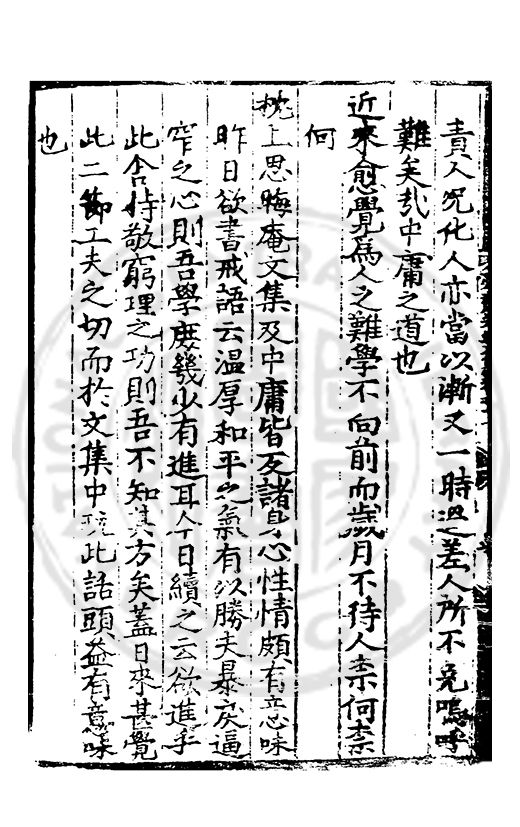 責人況化人亦當以漸又一時過差人所不免嗚呼
難矣哉中庸之道也
近來愈覺為人之難學不向前而歲月不待人柰何柰
何
枕上思晦庵文集及中庸皆反諸身心性情頗有意味
昨日欲書戒語云溫厚和平之氣有以勝夫暴戾逼
窄之心則吾學庶幾少有進耳今日續之云欲進乎
此舍持敬窮理之功則吾不知其方矣蓋日來甚覺
此二節工夫之切而於文集中玩此話頭益有意味
也